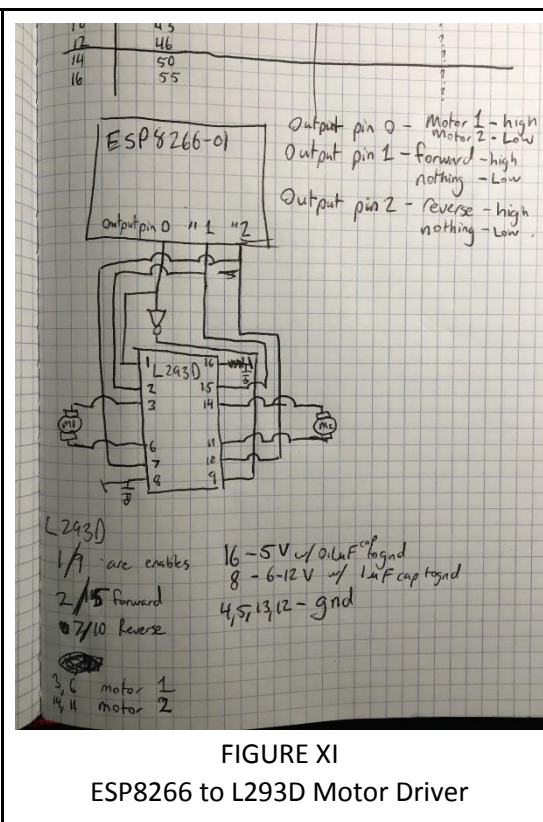 12 46
14 50
16 55
ESP8266-01
Output pin 0 - Motor 1 - high
Motor 2 - Low
Output pin 1 - forward - high
nothing - Low
Output pin 2 - reverse - high
nothing - Low.
Output pin 0 "1 "2
L293D
1 16
2 15
3 14
6 11
7 10
8 9
M1
M2
L293D
1/9 are enables
2/15 forward
7/10 Reverse
3,6 motor 1
14,11 motor 2
16 - 5V w/ 0.1uF cap to gnd
8 - 6-12V w/ 1uF cap to gnd
4,5,13,12 - gnd
FIGURE XI
ESP8266 to L293D Motor Driver